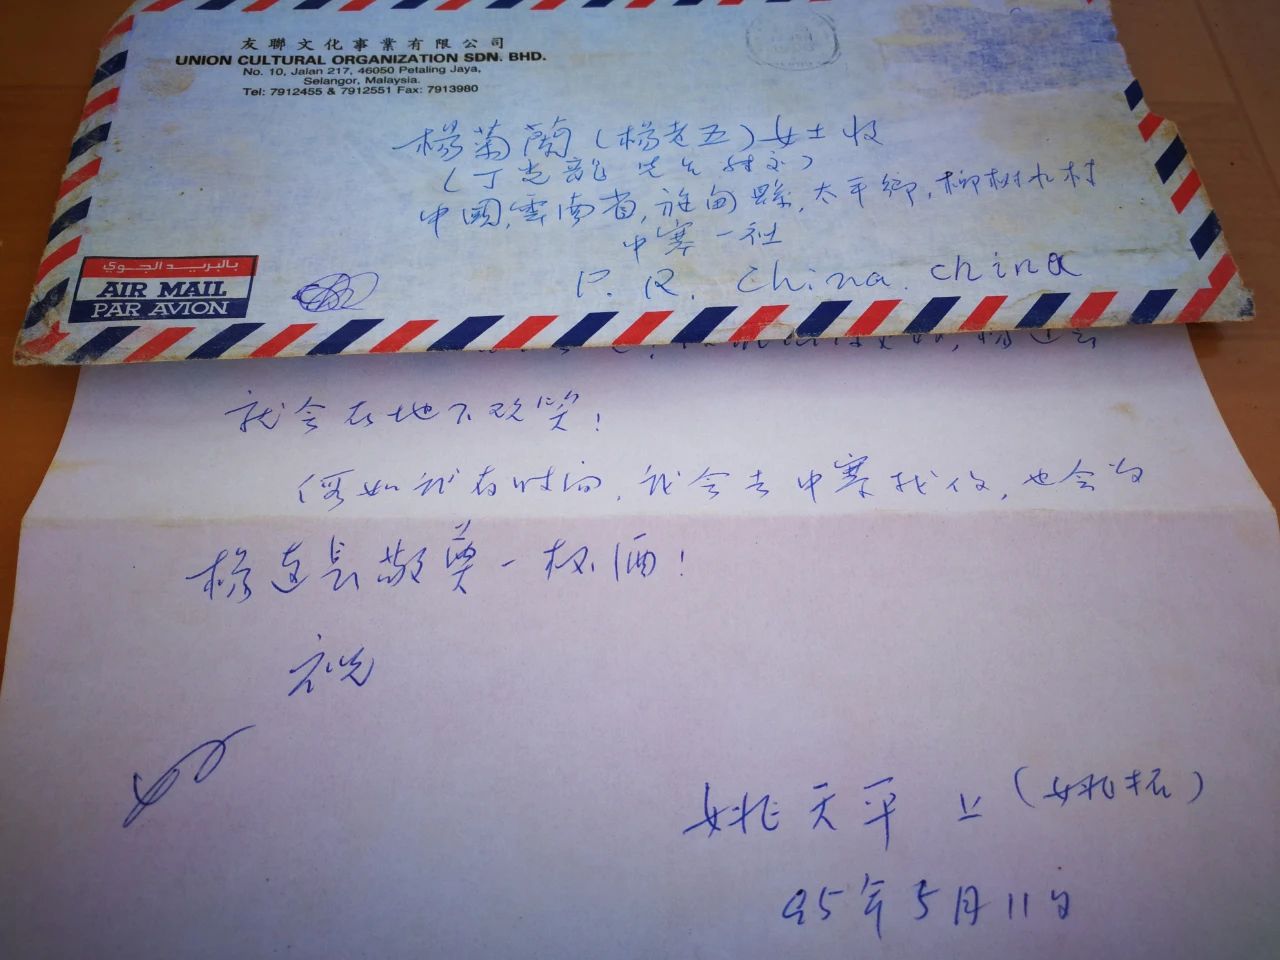 友聯文化事業有限公司
UNION CULTURAL ORGANIZATION SDN. BHD.
No. 10, Jalan 217, 46050 Petaling Jaya,
Selangor, Malaysia.
Tel: 7912455 & 7912551 Fax: 7913980
楊菊蘭(楊老五)女士收
(丁 龍先生转交)
中國,雲南省,施甸縣,太平鄉,柳树水村
中寨一社
P. R. China. China
بالبريد الجوي
AIR MAIL
PAR AVION
就会在地下欢笑!
假如我有时间,我会去中寨找你,也会为
楊连長敬奠一杯酒!
祝
好
姚天平 上(姚拓)
95年5月11日